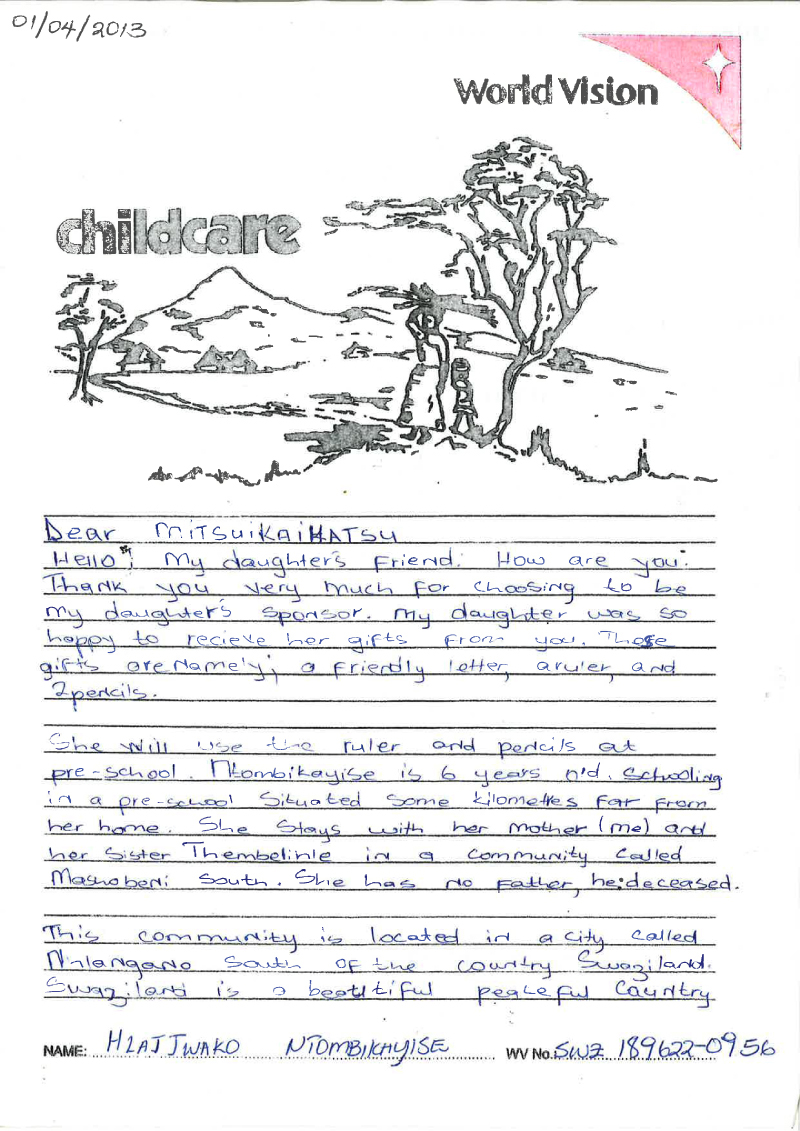 01/04/2013
World Vision
childcare
Dear MITSUIKAIHATSU
Hello, My daughter's Friend. How are you.
Thank you very much for choosing to be
my daughter's sponsor. My daughter was so
happy to recieve her gifts from you. These
gifts are Namely; a friendly letter, a ruler, and
2 pencils.
She will use the ruler and pencils at
pre-school. Ntombikayise is 6 years old. Schooling
in a pre-school situated some kilometres far from
her home. She stays with her mother (me) and
her sister Thembelihle in a community called
Mashobeni South. She has no father, he:deceased.
This community is located in a city called
Nhlangano South of the country Swaziland.
Swaziland is a beautiful peaceful country
NAME: HLATJWAKO NTOMBIKAYISE WV No. SWZ 189622-0956